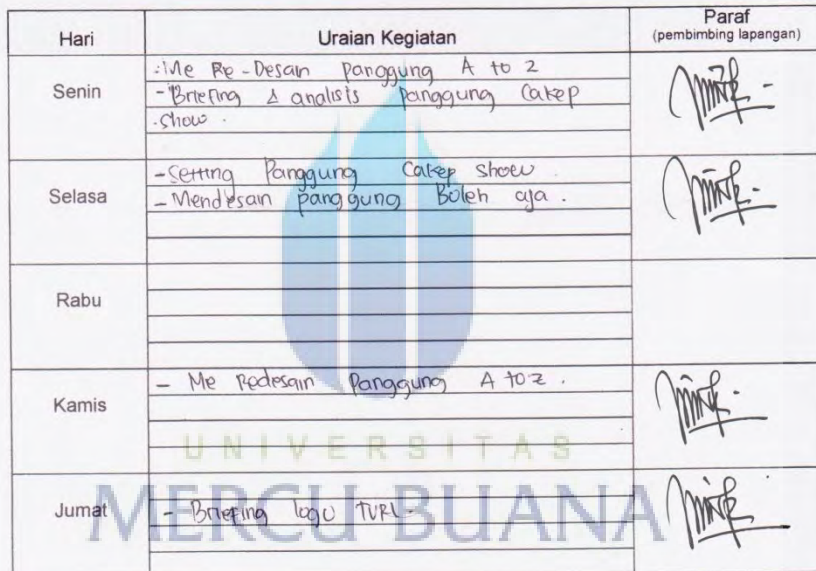 Hari Uraian Kegiatan Paraf
(pembimbing lapangan)
Senin
- Me Re-Desain panggung A to Z
- Briefing & analisis panggung Cakep
show.
Selasa
- Setting Panggung Cakep show.
- Mendesain panggung Boleh aja.
Rabu
Kamis
- Me Redesain Panggung A to z.
UNIVERSITAS
MERCU BUANA
Jumat
- Briefing logo TVRI.